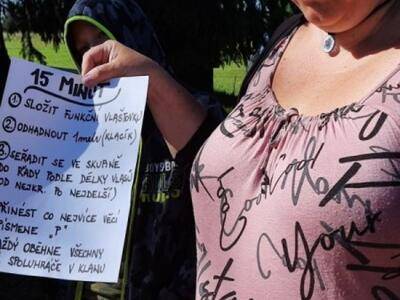 15 MINUT
① SLOŽIT FUNKČNÍ VLAŠŤOVKU
② ODHADNOUT 1 metr (KLACÍK)
③ SEŘADIT SE VE SKUPINĚ
DO ŘADY PODLE DÉLKY VLASŮ
OD NEJKR. PO NEJDELŠÍ)
PŘINÉST CO NEJVÍCE VĚCÍ
PÍSMENE "P"
KAŽDÝ OBĚHNE VŠECHNY
SPOLUHRÁČE V KLANU
Good
You